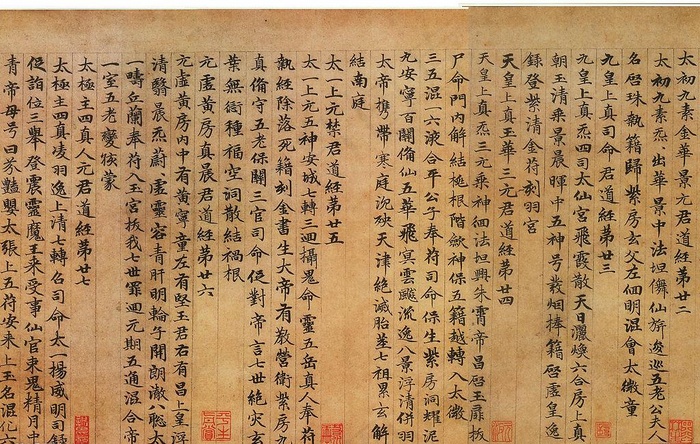 太初九素金華景元君道經第廿二
太初九素炁出華景中法坦備仙斿逡巡五老公夫
名启珠執籍歸紫房玄父左佪明混會太微童
九皇上真司命君道經第廿三
九皇上真炁四司太仙宮飛霞散天日灑煥六合房上真
朝玉清乘景晨暉中五神号散烟捧籍启靈皇逸
錄登紫清金苻刻羽宮
天皇上真玉華三元君道經第廿四
天皇上真炁三元乘神佪法坦興朱霄帝昌启玉扉扳
尸命門內解結槌根階斂神保五籍越轉入太微
三五混一六液合平公子奉苻司命保生紫房洞耀泥
九安寧百關俻仙五華飛冥雲飈流逸八景浮清併羽
太帝携帶寒庭沉殃天津絕滅胎莖七祖累玄解
結南庭
太一上元禁君道經第廿五
太一上元五神安城七轉三迴攝鬼命靈五岳真人奉苻
執經除落死籍刻金書生大帝有教營衛紫房九
真俻守五老保關三官司命促對帝言七世絕灾玄
葉無銜種福空洞散結禍根
元虛黃房真晨君道經第廿六
元虛黃房內中有黃寧童左有堅玉君右有昌上皇浮
清翳晨炁蔚虛靈容青肝明輪子開朗澈八聰太
一嚋丘蘭奉苻入玉宮拔我七世罪迴元期五通混合帝
一室五老變骇蒙
太極主四真人元君道經第廿七
太極主四真凌羽逸上清七轉召司命太一揚威明司錄
促詣位三舉登震靈魔王来受事仙官束鬼精月中
青帝母号曰芬豔嬰太張上五苻安来上玉名混化六